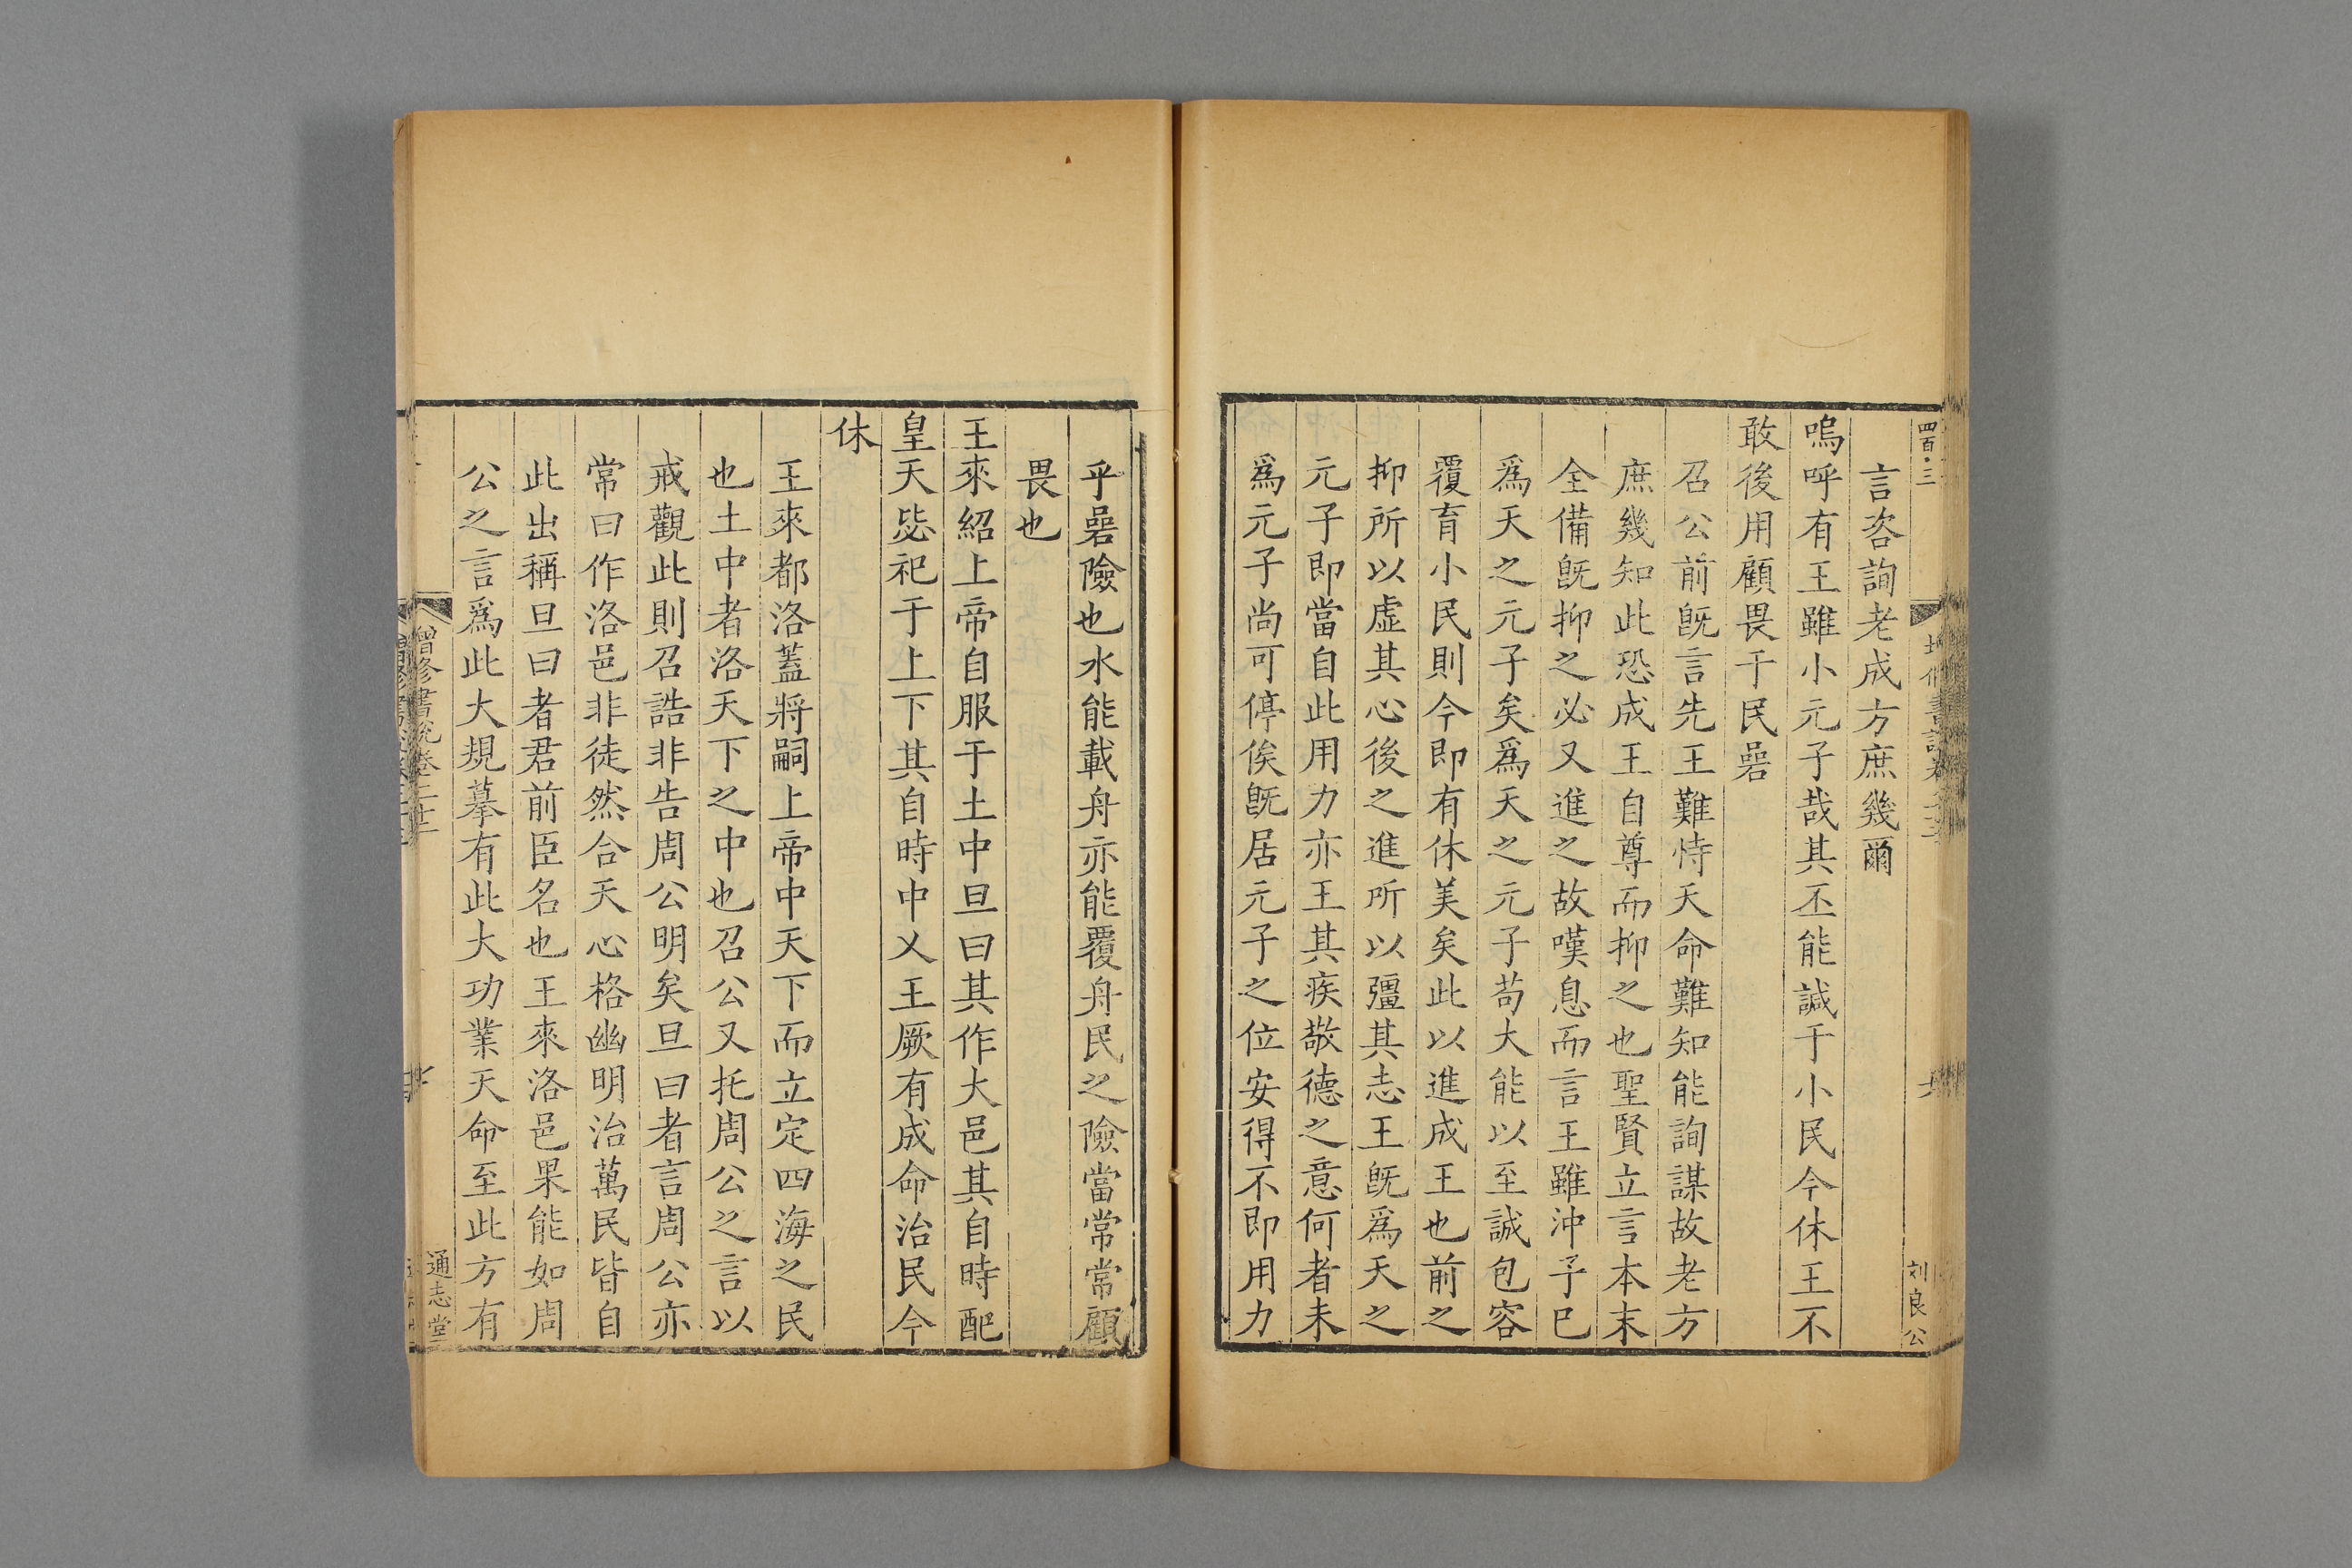 四百三
言咨詢老成方庶幾爾
嗚呼有王雖小元子哉其丕能諴于小民今休王不
敢後用顧畏于民碞
召公前旣言先王難恃天命難知能詢謀故老方
庶幾知此恐成王自尊而抑之也聖賢立言本末
全備旣抑之必又進之故嘆息而言王雖沖子已
爲天之元子矣爲天之元子苟大能以至誠包容
覆育小民則今即有休美矣此以進成王也前之
抑所以虛其心後之進所以彊其志王旣爲天之
元子即當自此用力亦王其疾敬德之意何者未
爲元子尚可停俟旣居元子之位安得不即用力
刘良公
乎碞險也水能載舟亦能覆舟民之險當常常顧
畏也
王來紹上帝自服于土中旦曰其作大邑其自時配
皇天毖祀于上下其自時中乂王厥有成命治民今
休
王來都洛蓋將嗣上帝中天下而立定四海之民
也土中者洛天下之中也召公又托周公之言以
戒觀此則召誥非告周公明矣旦曰者言周公亦
常曰作洛邑非徒然合天心格幽明治萬民皆自
此出稱旦曰者君前臣名也王來洛邑果能如周
公之言爲此大規摹有此大功業天命至此方有
增修書說卷二十二
通志堂